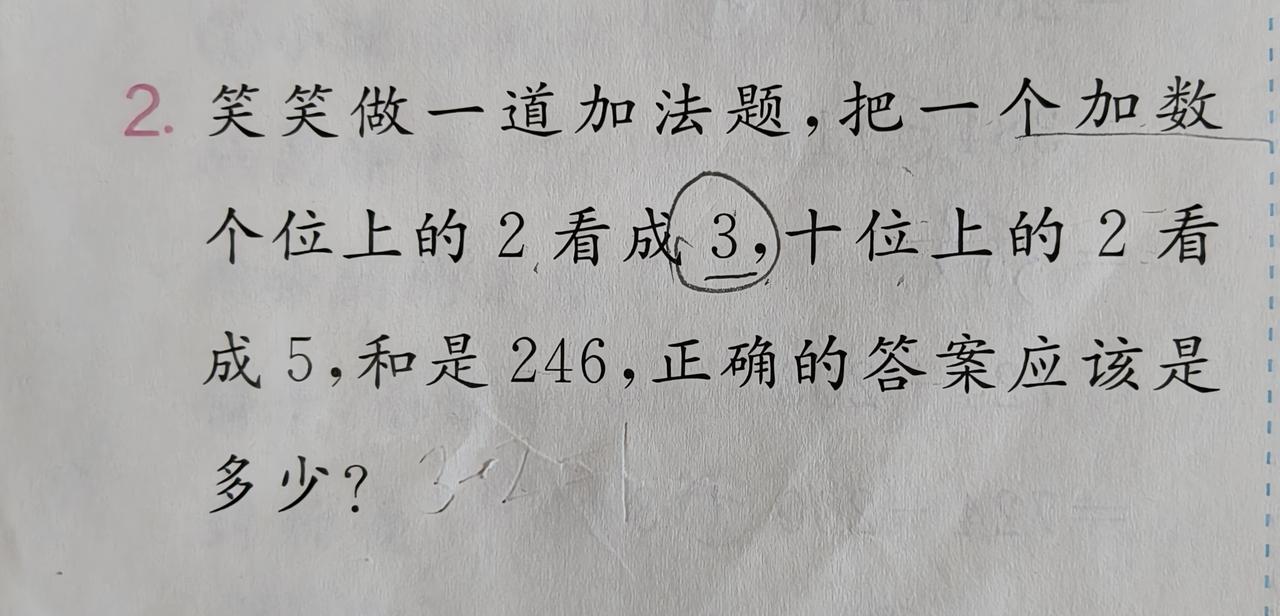 2. 笑笑做一道加法题,把一个加数
个位上的 2 看成 3,十位上的 2 看
成 5,和是 246,正确的答案应该是
多少?
3-2=1